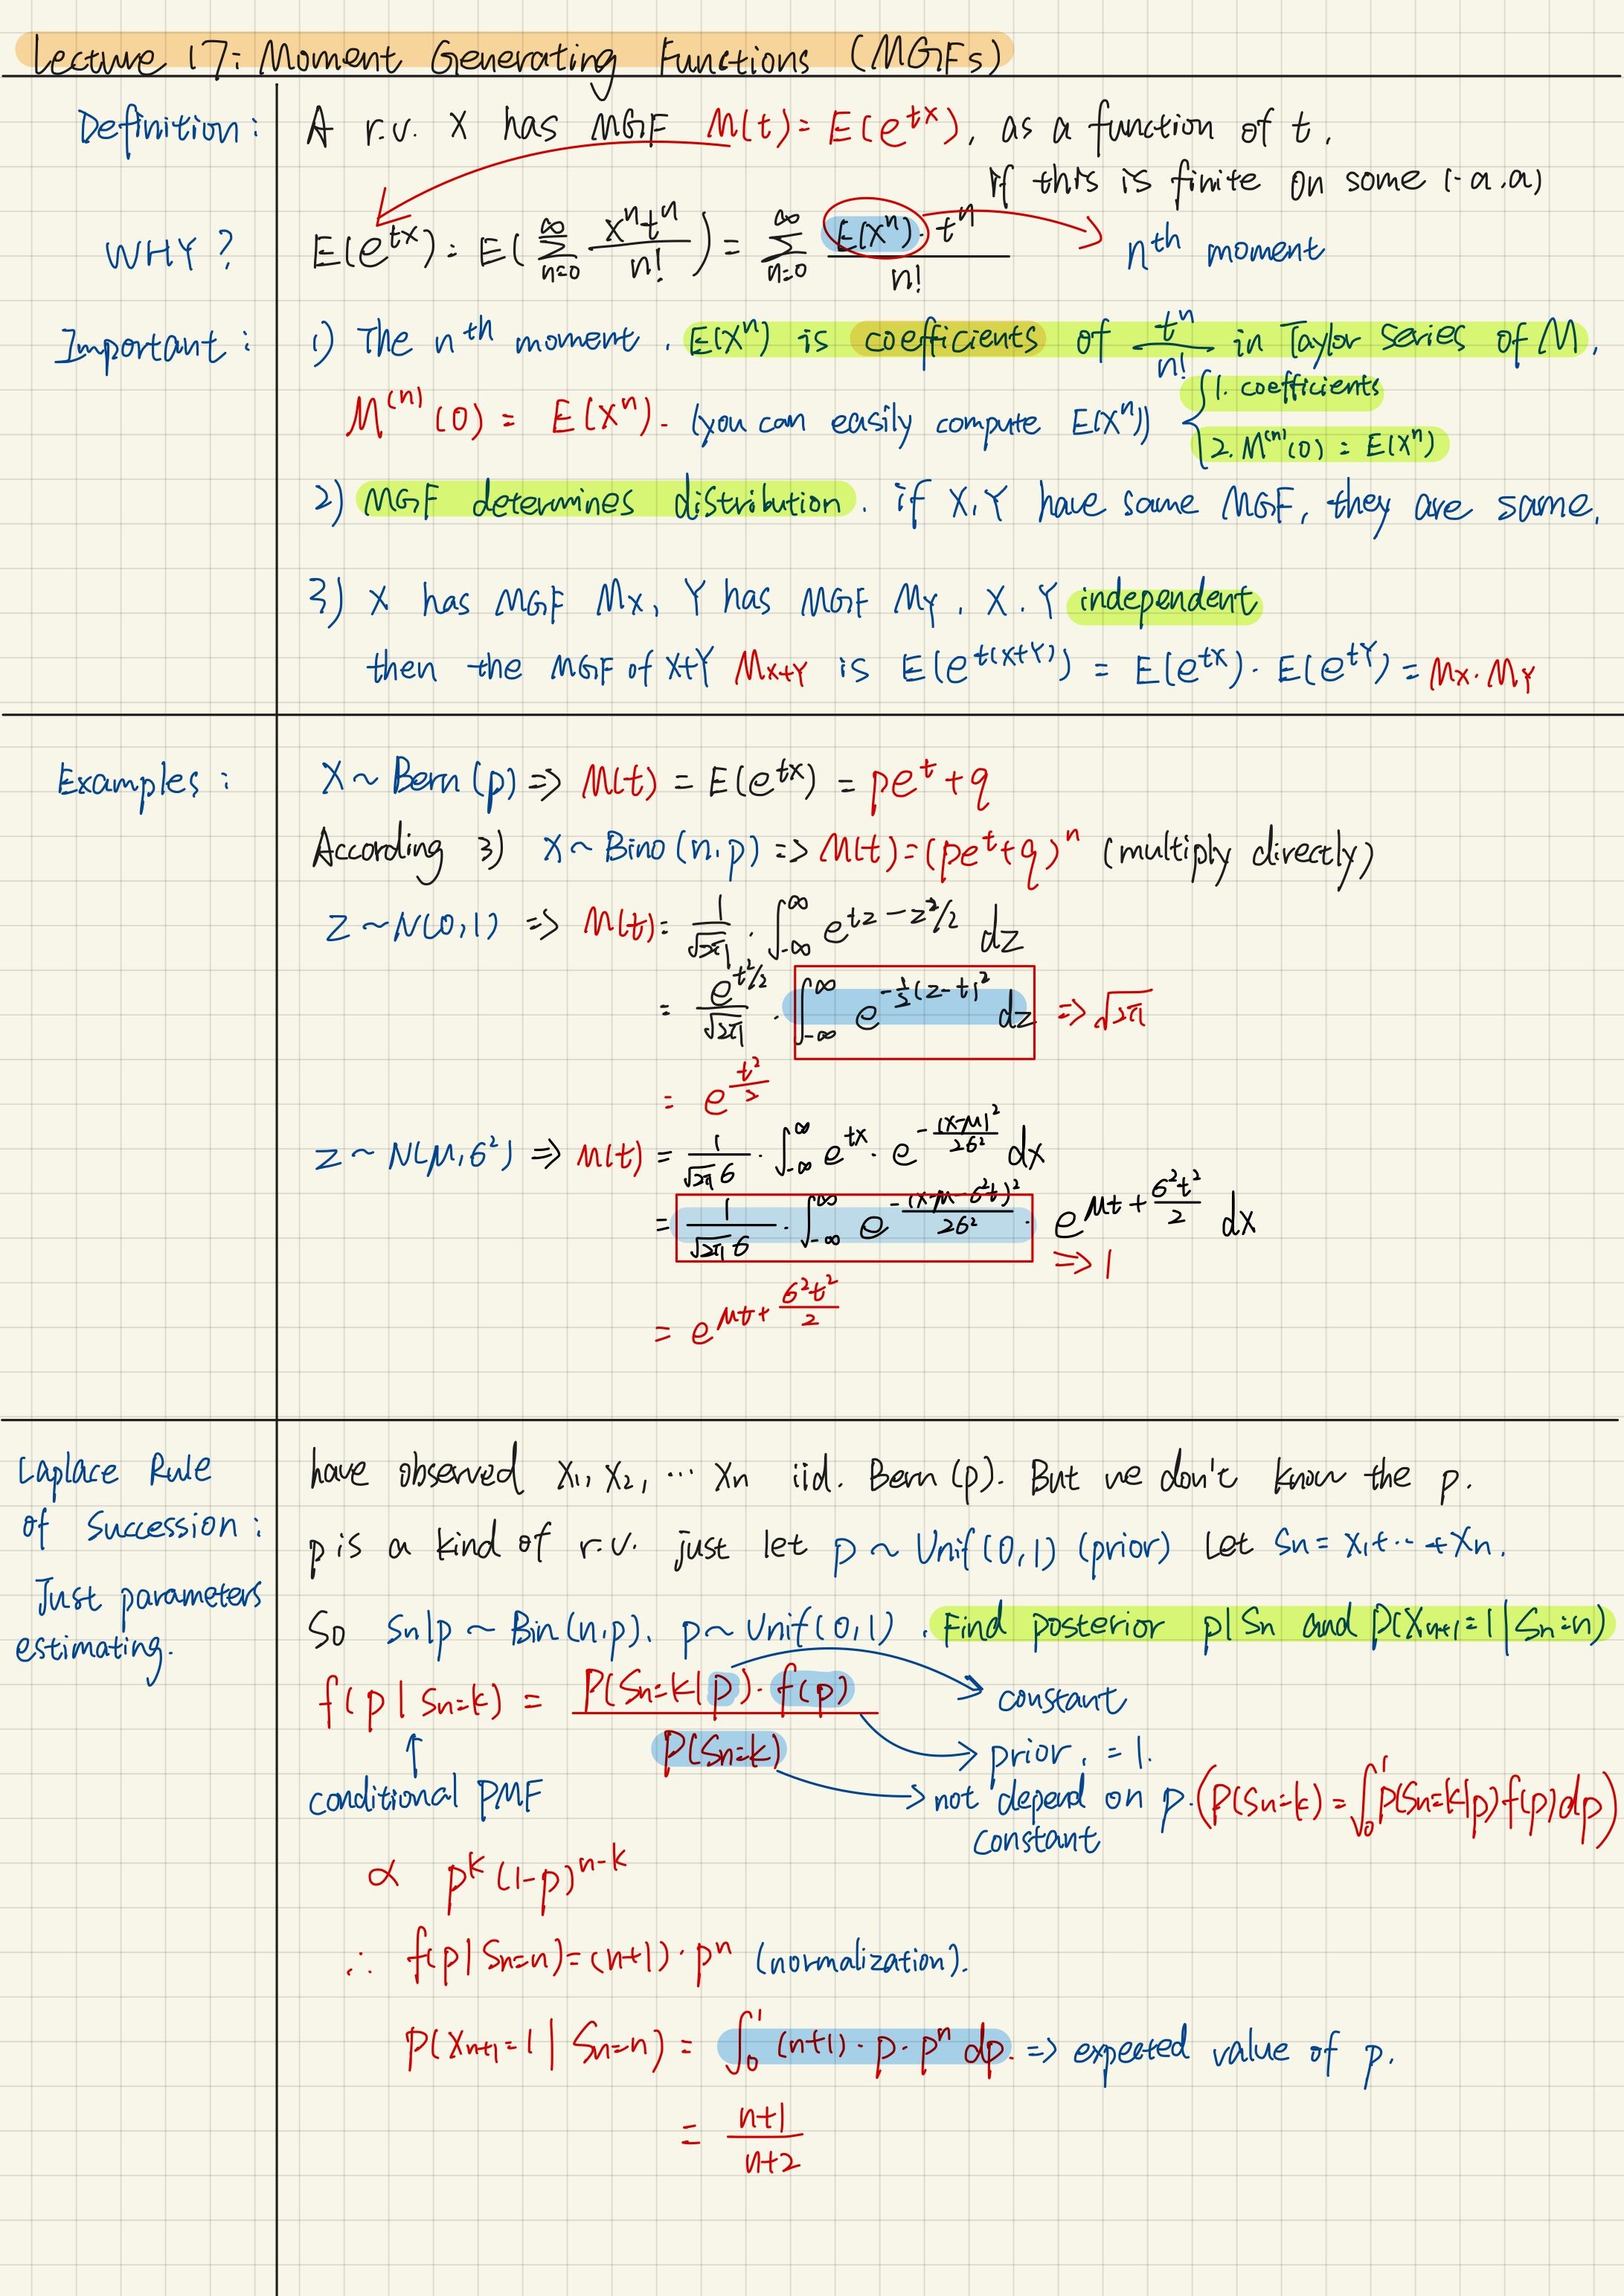 Lecture 17: Moment Generating Functions (MGFs)
Definition: A r.v. X has MGF M(t) = E(e^{tx}), as a function of t,
if this is finite on some (-a.a)
WHY? E(e^{tx}) = E(∑_{n=0}^{∞} x^n t^n / n!) = ∑_{n=0}^{∞} E(X^n)·t^n / n! n^{th} moment
Important: 1) The n^{th} moment, E(X^n) is coefficients of t^n/n! in Taylor Series of M.
M^{(n)}(0) = E(X^n). (you can easily compute E(X^n)) { 1. coefficients
2. M^{(n)}(0) = E(X^n)
2) MGF determines distribution. if X,Y have same MGF, they are same.
3) X has MGF Mx, Y has MGF My. X.Y independent
then the MGF of X+Y M_{X+Y} is E(e^{t(X+Y)}) = E(e^{tx})·E(e^{tY}) = Mx·My
Examples: X ~ Bern(p) => M(t) = E(e^{tx}) = pe^t + q
According 3) X ~ Bino(n,p) => M(t) = (pe^t + q)^n (multiply directly)
Z ~ N(0,1) => M(t) = 1/√2π · ∫_{-∞}^{∞} e^{tz - z²/2} dz
= e^{t²/2}/√2π · ∫_{-∞}^{∞} e^{-1/2(z-t)²} dz => √2π
= e^{t²/2}
Z ~ N(μ,6²) => M(t) = 1/√2π6 · ∫_{-∞}^{∞} e^{tx}· e^{-(x-μ)²/26²} dx
= 1/√2π6 · ∫_{-∞}^{∞} e^{-(x-μ-6²t)²/26²} · e^{μt + 6²t²/2} dx
=> 1
= e^{μt + 6²t²/2}
Laplace Rule
of Succession:
Just parameters
estimating.
have observed X₁, X₂, ··· Xn iid. Bern(p). But we don't know the p.
p is a kind of r.v. just let p ~ Unif(0,1) (prior) Let Sn = X₁+··+Xn.
So Sn|p ~ Bin(n,p). p ~ Unif(0,1). Find posterior p|Sn and P(X_{n+1}=1|Sn=n)
f(p|Sn=k) = P(Sn=k|p)·f(p) / P(Sn=k)
constant
prior. = 1.
conditional PMF
not depend on p. (P(Sn=k) = ∫₀¹ P(Sn=k|p)f(p)dp)
constant
∝ p^k (1-p)^{n-k}
∴ f(p|Sn=n) = (n+1)·p^n (normalization).
P(X_{n+1}=1|Sn=n) = ∫₀¹ (n+1)·p·p^n dp. => expected value of p.
= n+1 / n+2